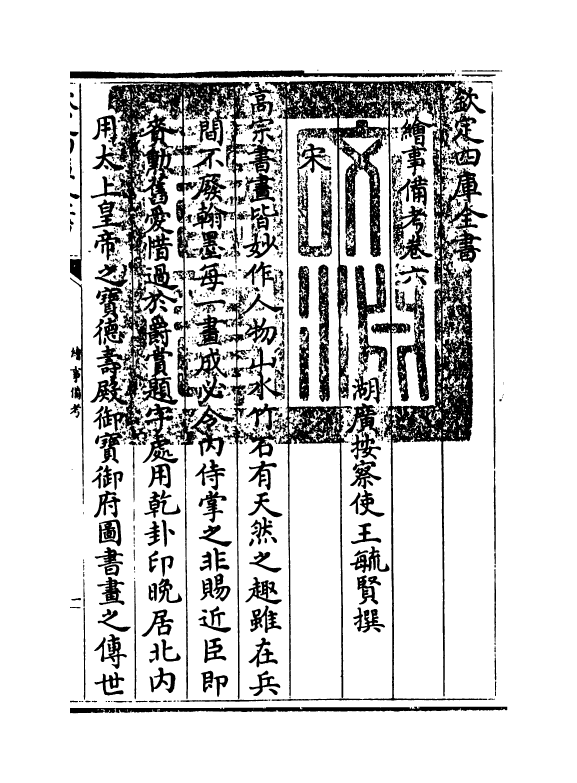 欽定四庫全書
繪事備考卷六
湖廣按察使王毓賢撰
宋
高宗書畫皆妙作人物山水竹石有天然之趣雖在兵
間不廢翰墨每一畫成必令內侍掌之非賜近臣即
賚勳舊愛惜過於爵賞題字處用乾卦印晚居北內
用太上皇帝之寶德壽殿御寶御府圖書畫之傳世
繪事備考